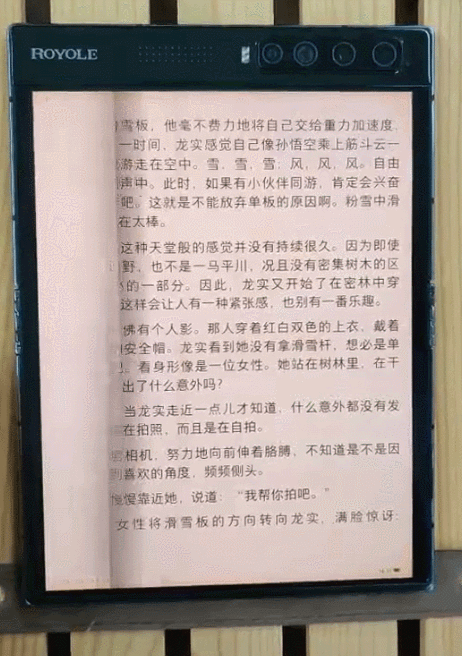 ROYOLE
雪板，他毫不费力地将自己交给重力加速度，
一时间，龙实感觉自己像孙悟空乘上筋斗云一
游走在空中。雪，雪，雪；风，风，风。自由
声中。此时，如果有小伙伴同游，肯定会兴奋
吧。这就是不能放弃单板的原因啊。粉雪中滑
在太棒。
这种天堂般的感觉并没有持续很久。因为即使
野，也不是一马平川，况且没有密集树木的区
的一部分。因此，龙实又开始了在密林中穿
这样会让人有一种紧张感，也别有一番乐趣。
佛有个人影。那人穿着红白双色的上衣，戴着
安全帽。龙实看到她没有拿滑雪杆，想必是单
看身形像是一位女性。她站在树林里，在干
出了什么意外吗？
当龙实走近一点儿才知道，什么意外都没有发
在拍照，而且是在自拍。
相机，努力地向前伸着胳膊，不知道是不是因
喜欢的角度，频频侧头。
慢靠近她，说道：“我帮你拍吧。”
女性将滑雪板的方向转向龙实，满脸惊讶：